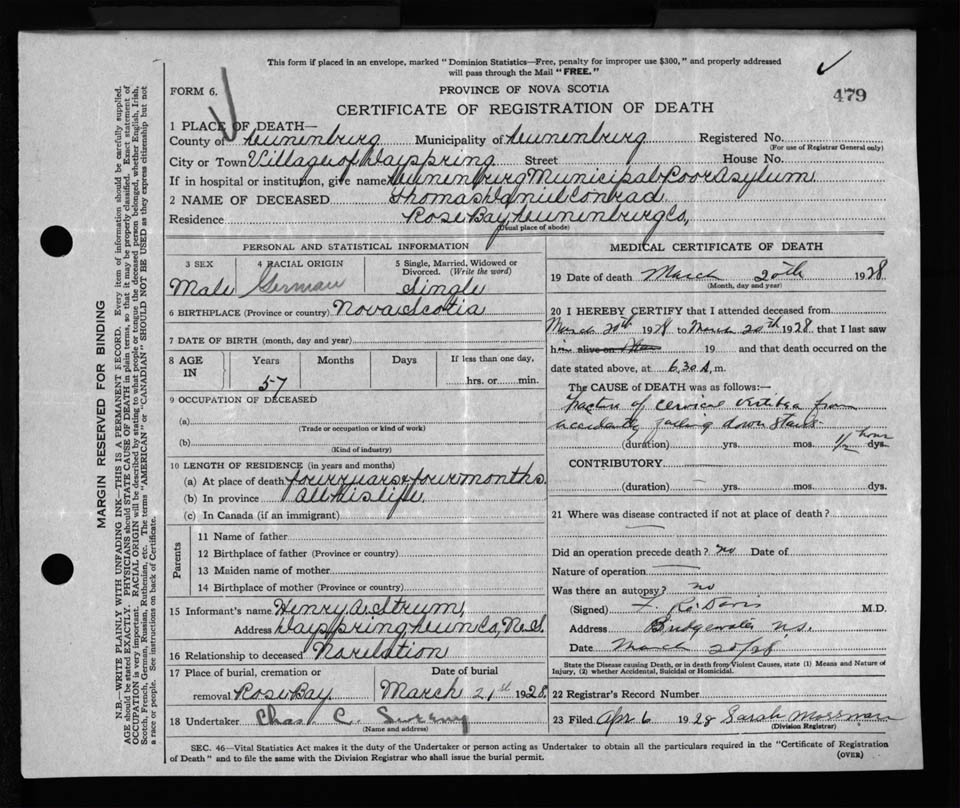 This form if placed in an envelope, marked "Dominion Statistics—Free, penalty for improper use $300," and properly addressed
will pass through the Mail "FREE."
FORM 6.
PROVINCE OF NOVA SCOTIA
479
CERTIFICATE OF REGISTRATION OF DEATH
1 PLACE OF DEATH—
County of Lunenburg Municipality of Lunenburg Registered No.
(For use of Registrar General only)
City or Town Village of Dayspring Street House No.
If in hospital or institution, give name Lunenburg Municipal Poor Asylum
2 NAME OF DECEASED Thomas Daniel Conrad
Residence Rose Bay, Lunenburg Co,
(Usual place of abode)
PERSONAL AND STATISTICAL INFORMATION
3 SEX Male
4 RACIAL ORIGIN German
5 Single, Married, Widowed or Divorced. (Write the word) Single
6 BIRTHPLACE (Province or country) Nova Scotia
7 DATE OF BIRTH (month, day and year)
8 AGE IN Years Months Days If less than one day,
57 hrs. or min.
9 OCCUPATION OF DECEASED
(a)
(Trade or occupation or kind of work)
(b)
(Kind of industry)
10 LENGTH OF RESIDENCE (in years and months)
(a) At place of death four years & four months
(b) In province all his life
(c) In Canada (if an immigrant)
Parents
11 Name of father
12 Birthplace of father (Province or country)
13 Maiden name of mother
14 Birthplace of mother (Province or country)
15 Informant's name Henry A. Strum,
Address Dayspring Lun Co, N.S.
16 Relationship to deceased No relation
17 Place of burial, cremation or removal Rose Bay
Date of burial March 21st 1928
18 Undertaker Chas C.
(Name and address)
MEDICAL CERTIFICATE OF DEATH
19 Date of death March 20th 1928
(Month, day and year)
20 I HEREBY CERTIFY that I attended deceased from
March 20th 1928 to March 20th 1928 that I last saw
him alive on 19 and that death occurred on the
date stated above, at 6.30 A.m.
The CAUSE of DEATH was as follows:—
Fracture of cervical vertebra from
accidently falling down stairs
(duration) yrs. mos. 1/2 hour dys.
CONTRIBUTORY
(duration) yrs. mos. dys.
21 Where was disease contracted if not at place of death?
Did an operation precede death? no Date of
Nature of operation
Was there an autopsy? no
(Signed) Davis M.D.
Address Bridgewater N.S.
Date March 20/28
State the Disease causing Death, or in death from Violent Causes, state (1) Means and Nature of
Injury, (2) whether Accidental, Suicidal or Homicidal.
22 Registrar's Record Number
23 Filed Apr 6 1928 Sarah
(Division Registrar)
SEC. 46—Vital Statistics Act makes it the duty of the Undertaker or person acting as Undertaker to obtain all the particulars required in the "Certificate of Registration
of Death" and to file the same with the Division Registrar who shall issue the burial permit.
(OVER)
MARGIN RESERVED FOR BINDING
N.B.—WRITE PLAINLY WITH UNFADING INK—THIS IS A PERMANENT RECORD. Every item of information should be carefully supplied.
AGE should be stated EXACTLY. PHYSICIANS should STATE CAUSE OF DEATH in plain terms, so that it may be properly classified. Exact statement of
OCCUPATION is very important. RACIAL ORIGIN will be described by stating to what people or tongue the deceased person belonged, whether English, Irish,
Scotch, French, German, Russian, Ruthenian, etc. The terms "AMERICAN" or "CANADIAN" SHOULD NOT BE USED as they express citizenship but not
a race or people. See instructions on back of Certificate.